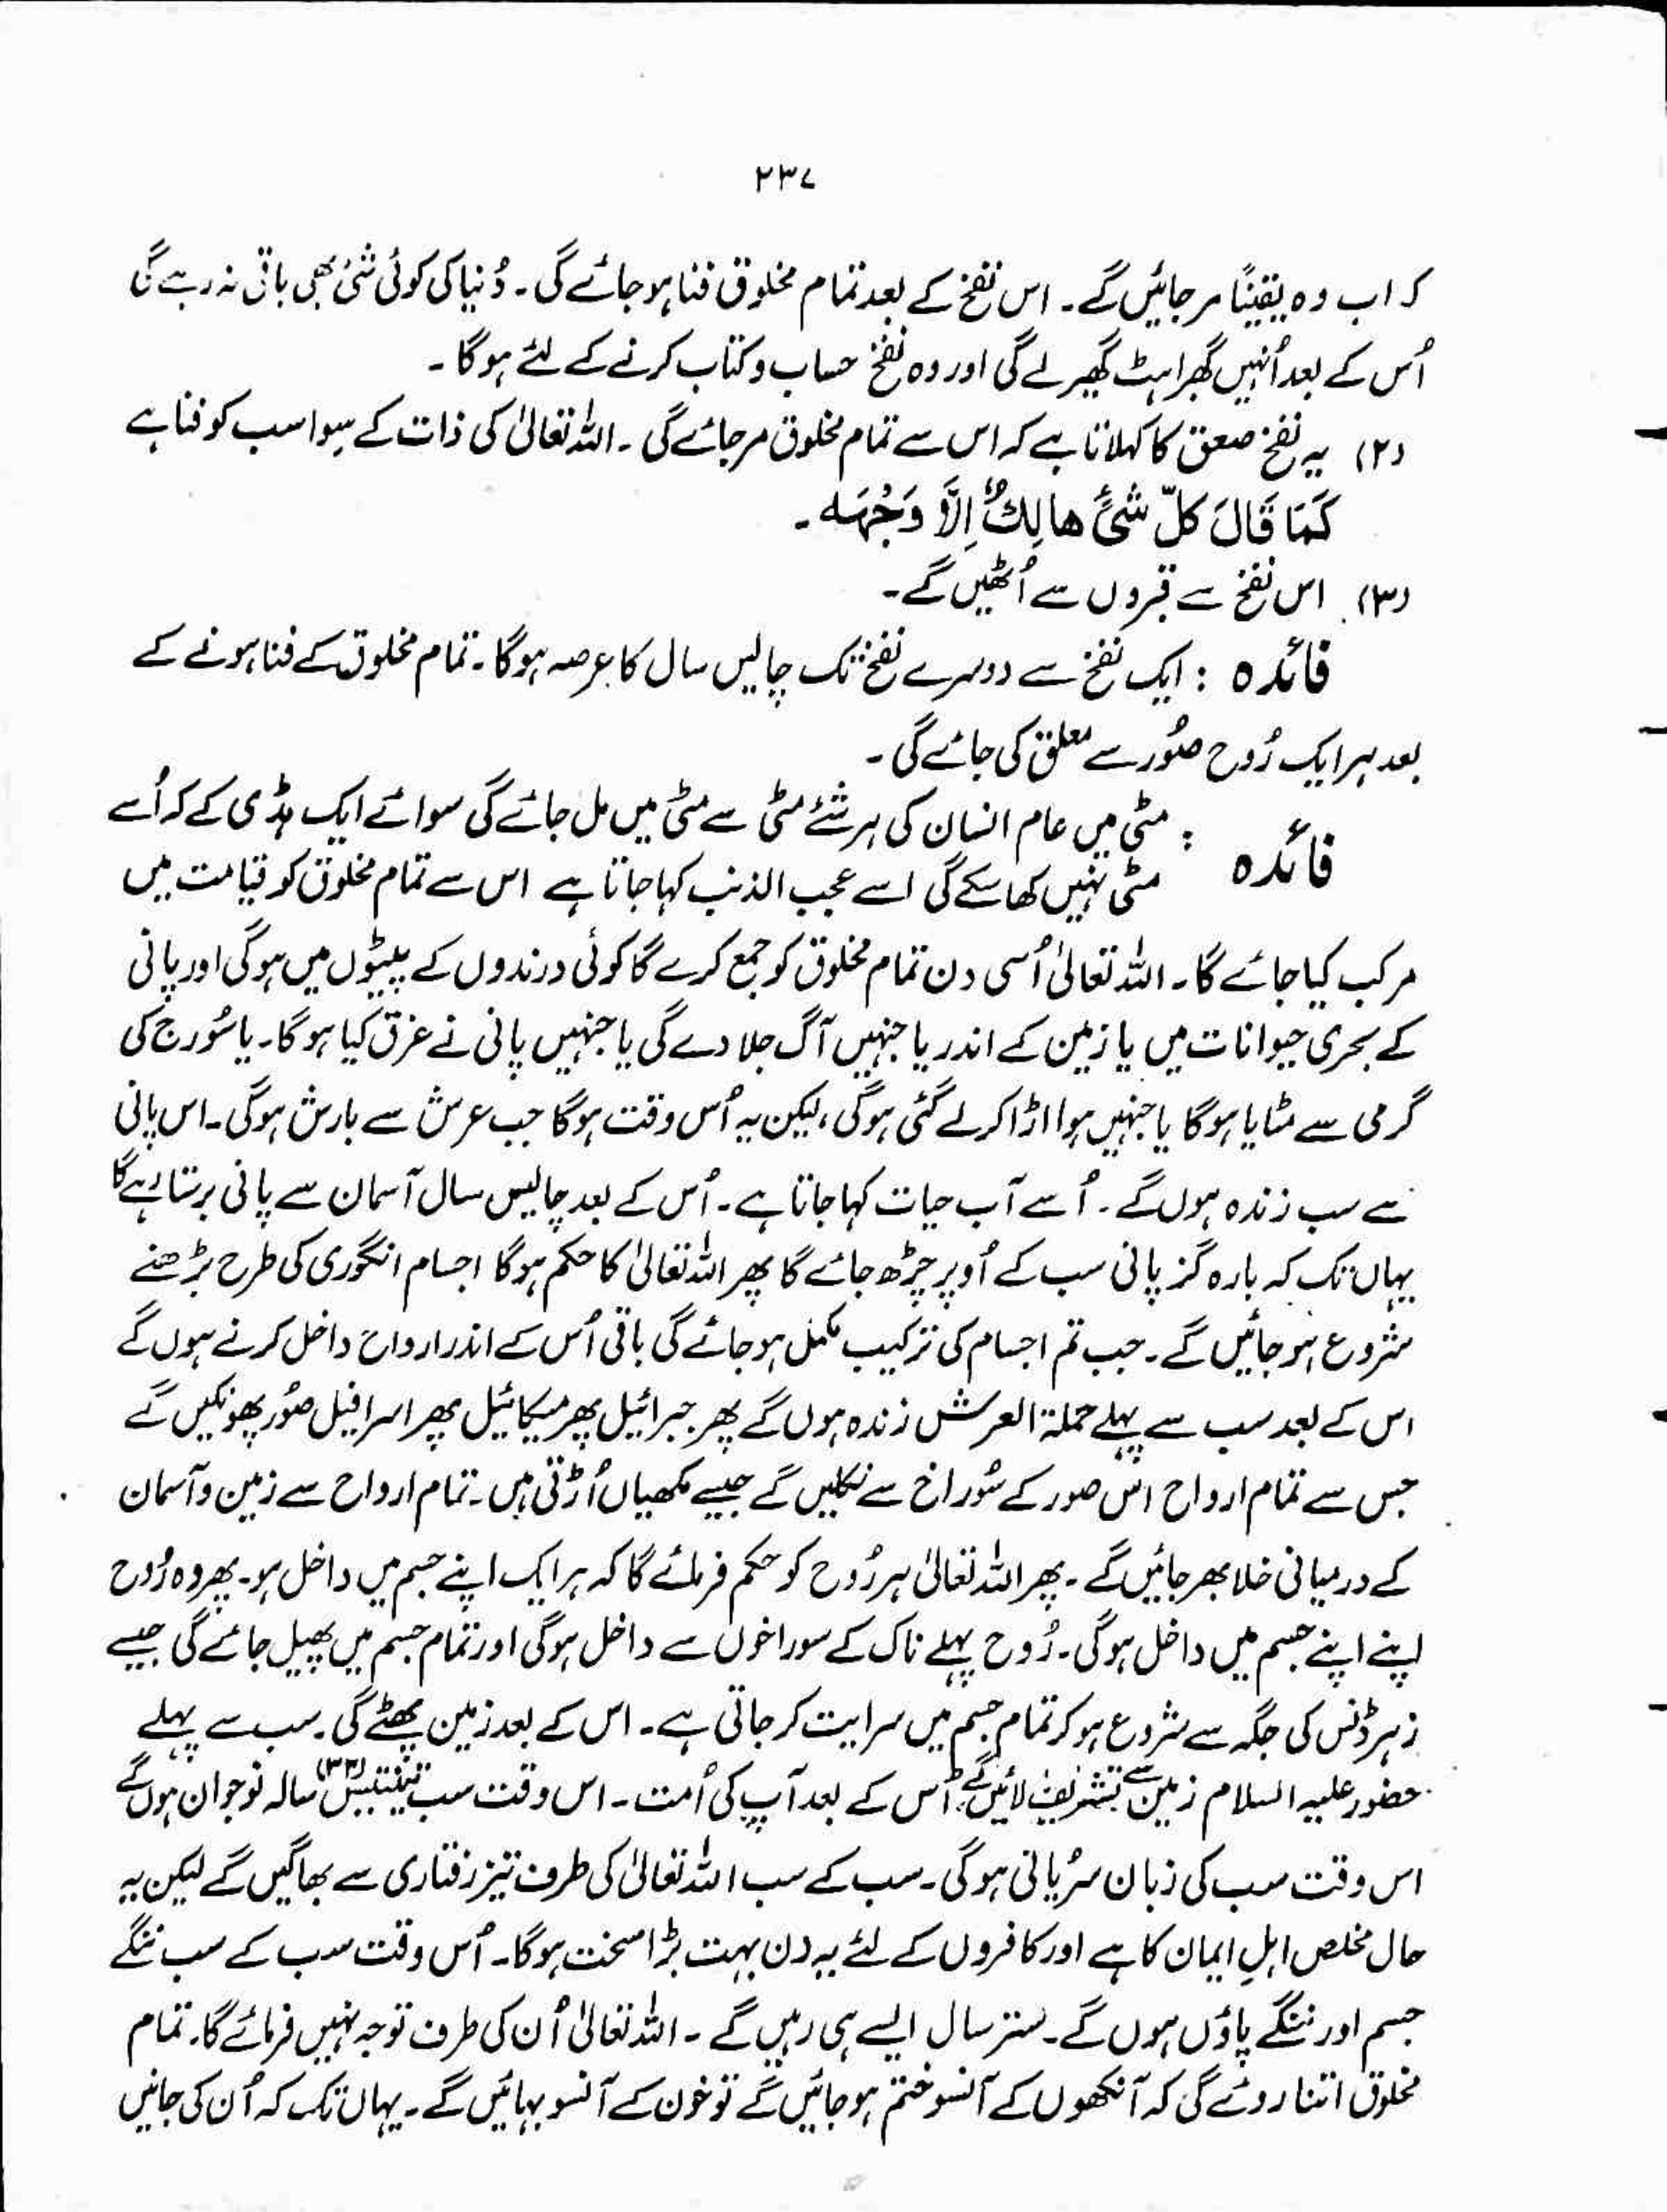 ۲۳۷
کہ اب وہ یقیناً مر جائیں گے۔ اس نفخ کے بعد تمام مخلوق فنا ہو جائے گی۔ دُنیا کی کوئی شئی بھی باقی نہ رہے گی
اُس کے بعد اُنہیں گھبراہٹ گھیر لے گی اور وہ نفخ حساب و کتاب کرنے کے لئے ہوگا۔
(۲) یہ نفخ صعق کا کہلاتا ہے کہ اس سے تمام مخلوق مر جائے گی۔ اللہ تعالیٰ کی ذات کے سِوا سب کو فنا ہے
کَمَا قَالَ کلّ شَیٍٔ ھالِكٌ اِلَّا وَجْہَہ۔
(۳) اس نفخ سے قبروں سے اُٹھیں گے۔
فائدہ : ایک نفخ سے دوسرے نفخ تک چالیس سال کا عرصہ ہوگا۔ تمام مخلوق کے فنا ہونے کے
بعد ہر ایک رُوح صُور سے معلق کی جائے گی۔
فائدہ : مٹی میں عام انسان کی ہر شئے مٹی سے مٹی میں مل جائے گی سوائے ایک ہڈی کے کہ اُسے
مٹی نہیں کھا سکے گی اسے عجب الذنب کہا جاتا ہے اس سے تمام مخلوق کو قیامت میں
مرکب کیا جائے گا۔ اللہ تعالیٰ اُسی دن تمام مخلوق کو جمع کرے گا کوئی درندوں کے پیٹوں میں ہوگی اور پانی
کے بحری حیوانات میں یا زمین کے اندر یا جنہیں آگ جلا دے گی یا جنہیں پانی نے غرق کیا ہوگا۔ یا سُورج کی
گرمی سے مٹایا ہوگا یا جنہیں ہوا اڑا کر لے گئی ہوگی، لیکن یہ اُس وقت ہوگا جب عرش سے بارش ہوگی۔ اس پانی
سے سب زندہ ہوں گے۔ اُسے آب حیات کہا جاتا ہے۔ اُس کے بعد چالیس سال آسمان سے پانی برستا رہے گا
یہاں تک کہ بارہ گز پانی سب کے اُوپر چڑھ جائے گا پھر اللہ تعالیٰ کا حکم ہوگا اجسام انگوری کی طرح بڑھنے
شروع ہو جائیں گے۔ جب تم اجسام کی ترکیب مکمل ہو جائے گی باقی اُس کے اندر ارواح داخل کرنے ہوں گے
اس کے بعد سب سے پہلے حملۃ العرش زندہ ہوں گے پھر جبرائیل پھر میکائیل پھر اسرافیل صُور پھونکیں گے
جس سے تمام ارواح اس صور کے سُوراخ سے نکلیں گے جیسے مکھیاں اُڑتی ہیں۔ تمام ارواح سے زمین و آسمان
کے درمیانی خلا بھر جائیں گے۔ پھر اللہ تعالیٰ ہر رُوح کو حکم فرمائے گا کہ ہر ایک اپنے جسم میں داخل ہو۔ پھر وہ رُوح
اپنے اپنے جسم میں داخل ہوگی۔ رُوح پہلے ناک کے سوراخوں سے داخل ہوگی اور تمام جسم میں پھیل جائے گی جیسے
زہر ڈنس کی جگہ سے شروع ہو کر تمام جسم میں سرایت کر جاتی ہے۔ اس کے بعد زمین پھٹے گی۔ سب سے پہلے
حضور علیہ السلام زمین سے تشریف لائیں گے، اُس کے بعد آپ کی اُمت۔ اس وقت سب تینتیس (۳۳) سالہ نوجوان ہوں گے
اس وقت سب کی زبان سُریانی ہوگی۔ سب کے سب اللہ تعالیٰ کی طرف تیز رفتاری سے بھاگیں گے لیکن یہ
حال مخلص اہلِ ایمان کا ہے اور کافروں کے لئے یہ دن بہت بڑا سخت ہوگا۔ اُس وقت سب کے سب ننگے
جسم اور ننگے پاؤں ہوں گے۔ ستر سال ایسے ہی رہیں گے۔ اللہ تعالیٰ اُن کی طرف توجہ نہیں فرمائے گا۔ تمام
مخلوق اتنا روئے گی کہ آنکھوں کے آنسو ختم ہو جائیں گے تو خون کے آنسو بہائیں گے۔ یہاں تک کہ اُن کی جانیں